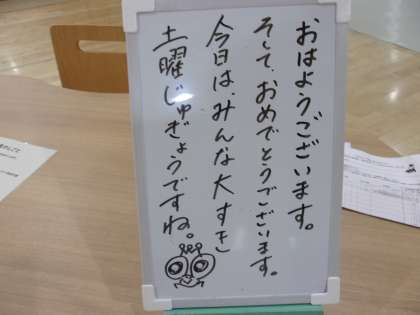 おはようございます。
そして、おめでとうございます。
今日は、みんな大すき
土曜じゅぎょうですね。